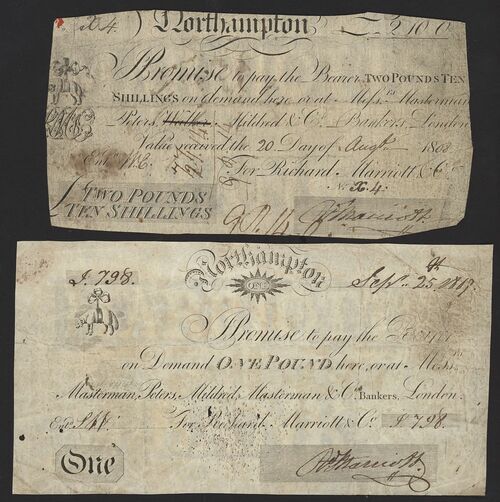 X4. Northampton £2 10 0
I Promise to pay the Bearer, TWO POUNDS TEN
SHILLINGS on demand here or at Mess.rs Masterman
Peters, Mildred & Co. Bankers, London
Value received the 20 Day of Augt 1808
Entd For Richard Marriott & Co.
No. X.4.
TWO POUNDS
TEN SHILLINGS
R Marriott
Northampton
J.798. ONE Sepr 25th 1817
I Promise to pay the Bearer
on Demand ONE POUND here, or at Mess.rs
Masterman, Peters, Mildred, Masterman & Co. Bankers, London.
Entd For Richard Marriott & Co. J.798.
One
R Marriott